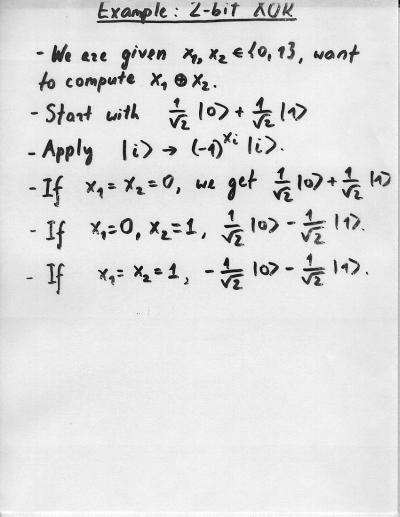 Example: 2-bit XOR
- We are given x₁, x₂ ∈ {0, 1}, want
to compute x₁ ⊕ x₂.
- Start with 1/√2 |0> + 1/√2 |1>
- Apply |i> → (-1)^xᵢ |i>.
- If x₁ = x₂ = 0, we get 1/√2 |0> + 1/√2 |1>
- If x₁=0, x₂=1, 1/√2 |0> - 1/√2 |1>.
- If x₁ = x₂ = 1, -1/√2 |0> - 1/√2 |1>.